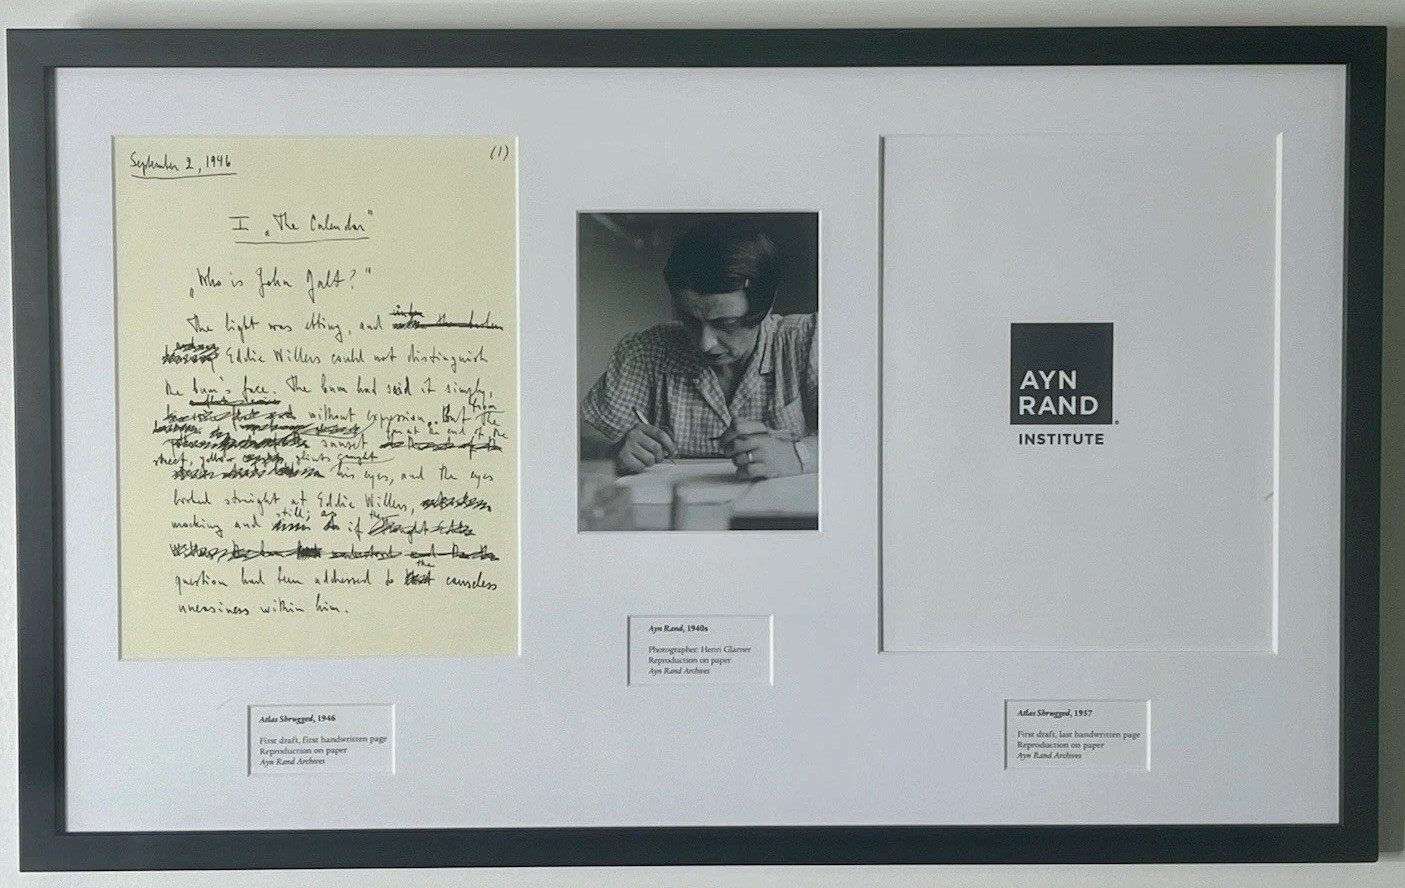 September 2, 1946
(1)
I „The Calendar"
„Who is John Galt?"
The light was ebbing, and
Eddie Willers could not distinguish
the bum's face. The bum had said it simply,
without expression. But from the
sunset far at the end of the
street, yellow glints caught
his eyes, and the eyes
looked straight at Eddie Willers,
mocking and still, as if the
question had been addressed to the causeless
uneasiness within him.
Atlas Shrugged, 1946
First draft, first handwritten page
Reproduction on paper
Ayn Rand Archives
Ayn Rand, 1940s
Photographer: Henri Glarner
Reproduction on paper
Ayn Rand Archives
AYN
RAND
INSTITUTE
Atlas Shrugged, 1957
First draft, last handwritten page
Reproduction on paper
Ayn Rand Archives